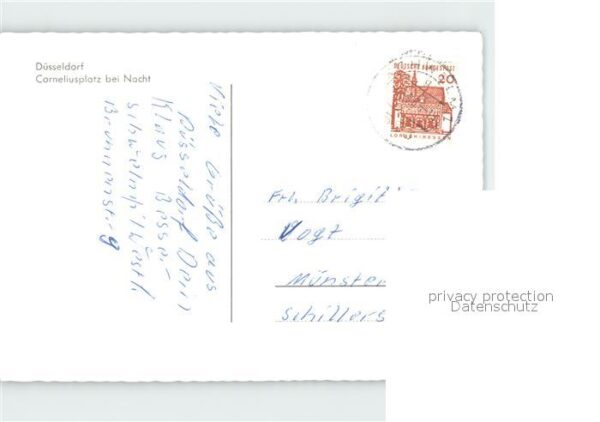 Düsseldorf
Corneliusplatz bei Nacht
DEUTSCHE BUNDESPOST
20
Viele Grüße aus
Düsseldorf Dein
Klaus Besser
Brunnenstr. 9
Frl. Brigit
Vogt
Münster
Schillers
privacy protection
Datenschutz